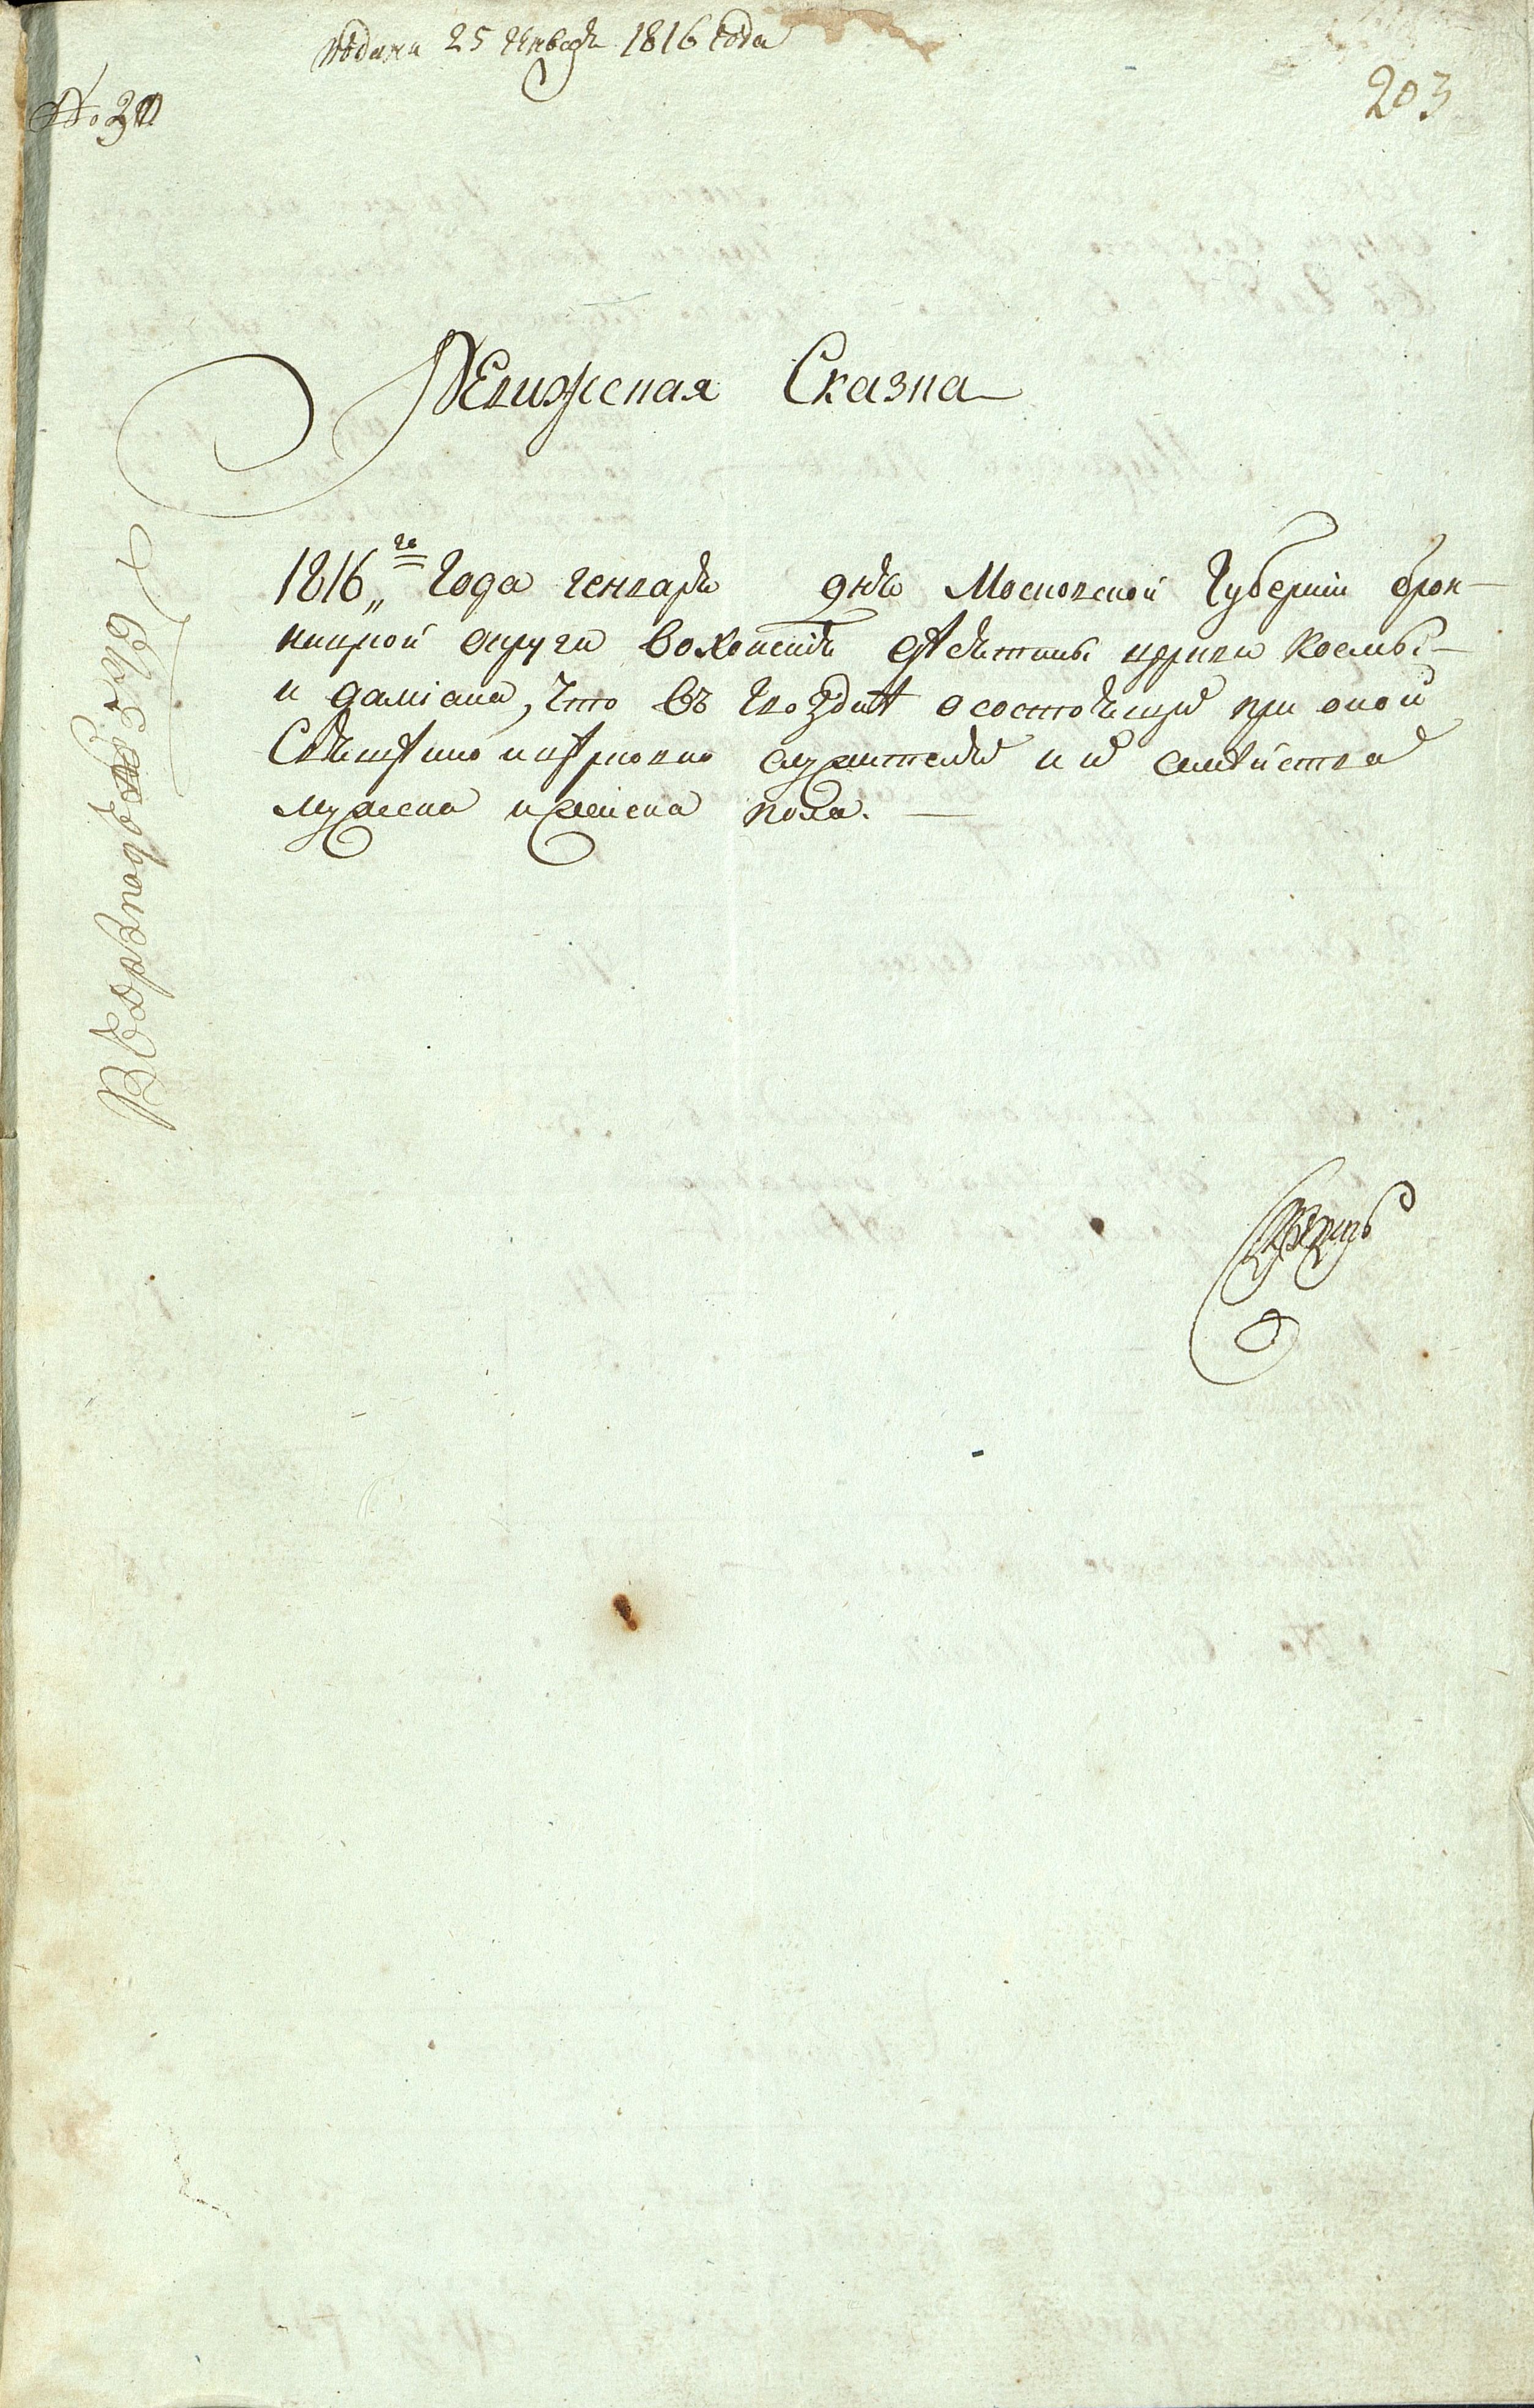 подана 25 Генваря 1816 года
№ 30
203
Ревижская Сказка
1816„го Года генваря дня Московской Губернiи брон-
ницкой округи вохонской десятины церкви космы-
и дамiана, что въ гвоздне о состоящих при оной
Священно и церковно служителях и их семействах
мужеска и женска пола. —